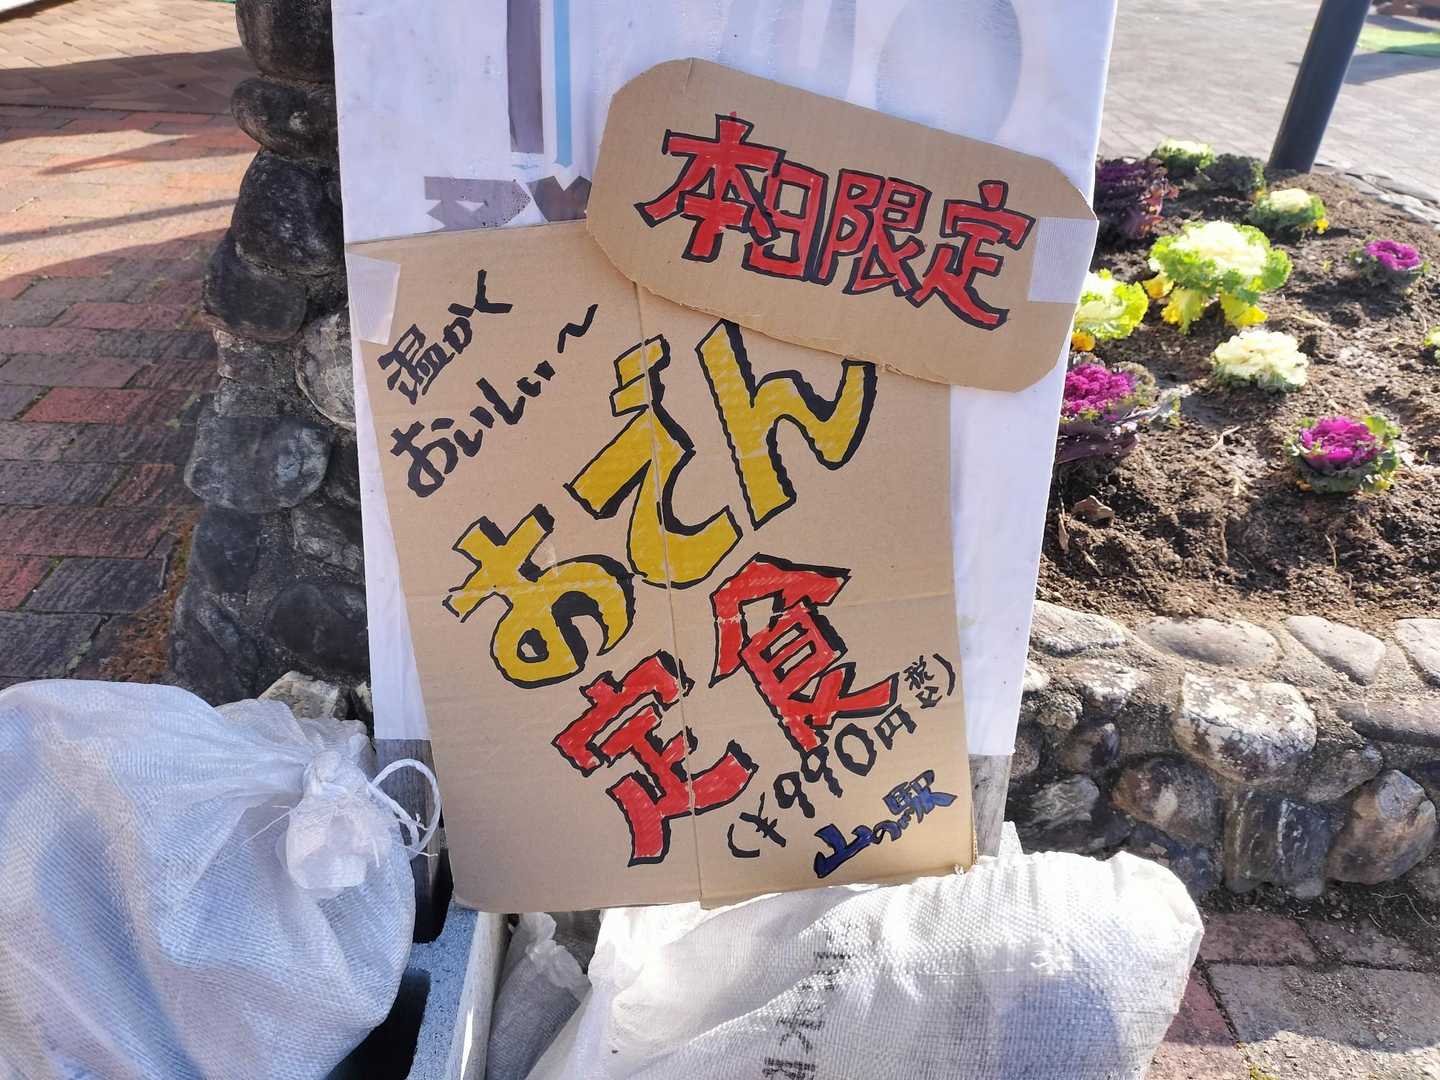 本日限定
温かく
おいしい〜
おえん
定食
(¥990円税込)
山の駅